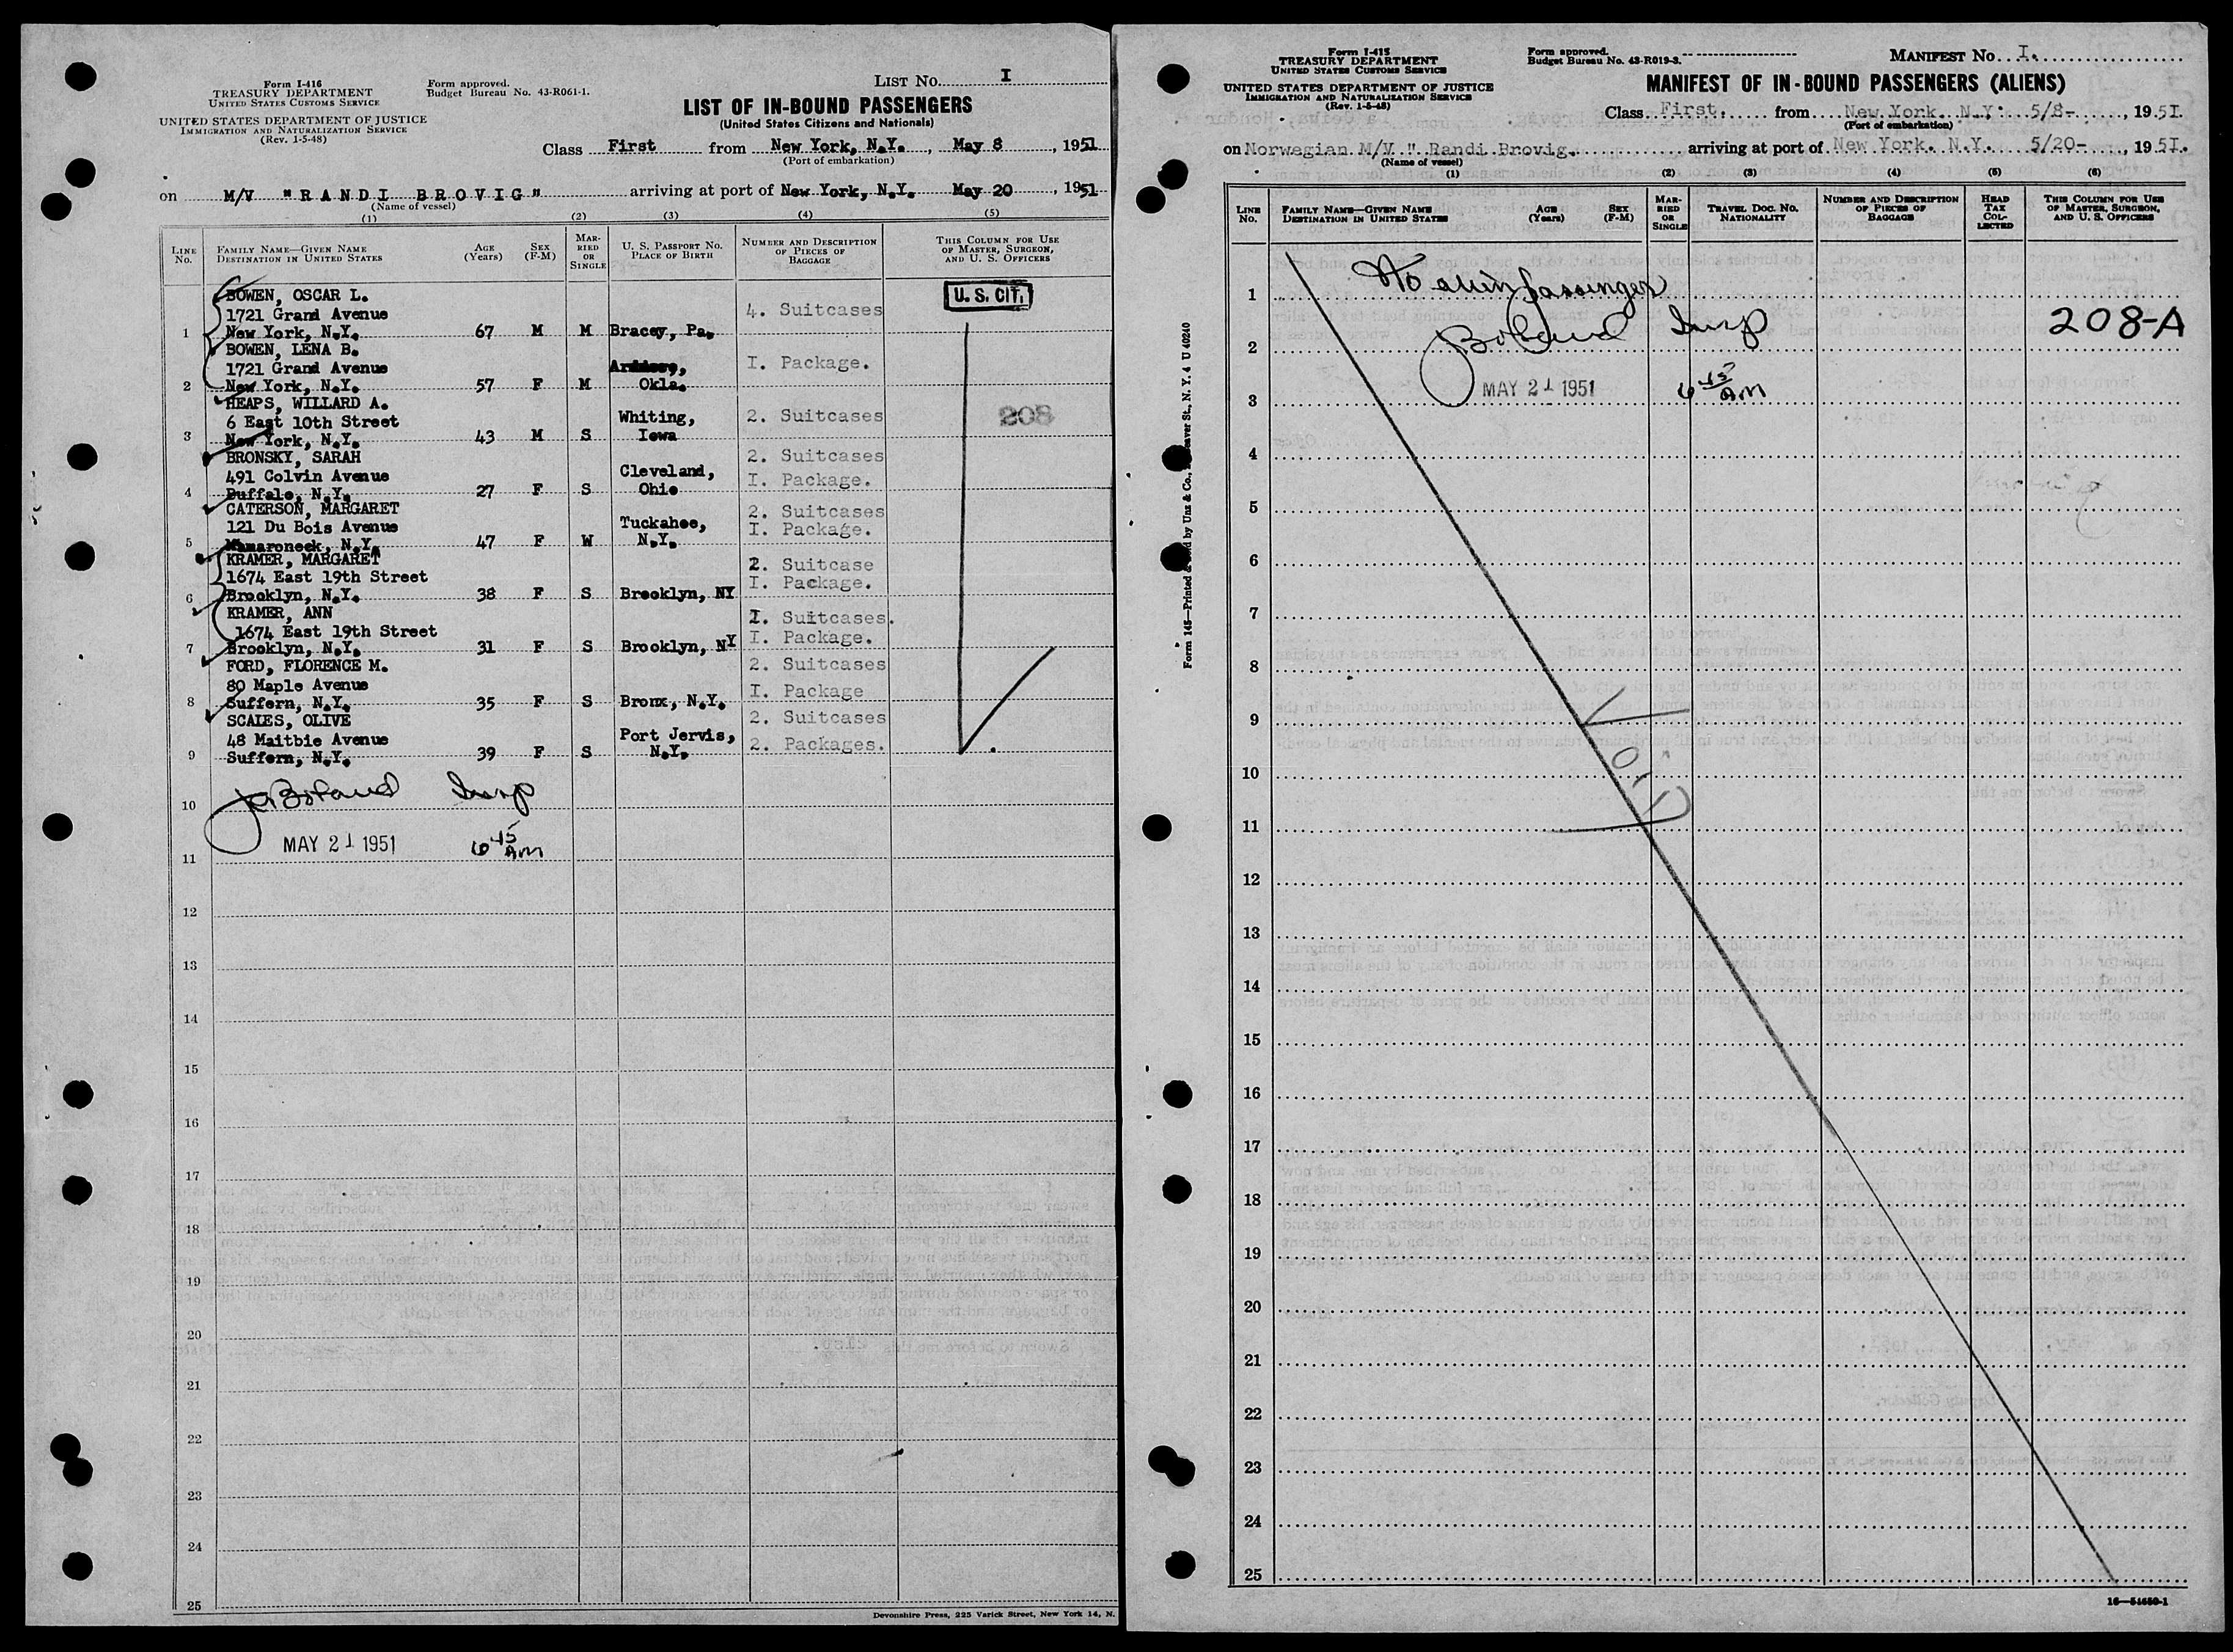 Form I-416
TREASURY DEPARTMENT
UNITED STATES CUSTOMS SERVICE
UNITED STATES DEPARTMENT OF JUSTICE
IMMIGRATION AND NATURALIZATION SERVICE
(Rev. 1-5-48)
Form approved.
Budget Bureau No. 43-R061-1.
LIST No. I
LIST OF IN-BOUND PASSENGERS
(United States Citizens and Nationals)
Class First from New York, N.Y., May 8, 1951
(Port of embarkation)
on M/V "RANDI BROVIG" arriving at port of New York, N.Y. May 20, 1951
(Name of vessel)
(1) (2) (3) (4) (5)
LINE No. FAMILY NAME—GIVEN NAME DESTINATION IN UNITED STATES AGE (Years) SEX (F-M) MARRIED OR SINGLE U. S. PASSPORT NO. PLACE OF BIRTH NUMBER AND DESCRIPTION OF PIECES OF BAGGAGE THIS COLUMN FOR USE OF MASTER, SURGEON, AND U. S. OFFICERS
U. S. CIT.
BOWEN, OSCAR L.
1721 Grand Avenue 4. Suitcases
1 New York, N.Y. 67 M M Bracey, Pa.
BOWEN, LENA B.
1721 Grand Avenue I. Package.
2 New York, N.Y. 57 F M Okla.
HEAPS, WILLARD A.
6 East 10th Street Whiting, 2. Suitcases 208
3 New York, N.Y. 43 M S Iowa
BRONSKY, SARAH 2. Suitcases
491 Colvin Avenue Cleveland, I. Package.
4 Buffalo, N.Y. 27 F S Ohio
CATERSON, MARGARET 2. Suitcases
121 Du Bois Avenue Tuckahoe, I. Package.
5 Mamaroneck, N.Y. 47 F W N.Y.
KRAMER, MARGARET 2. Suitcase
1674 East 19th Street I. Package.
6 Brooklyn, N.Y. 38 F S Brooklyn, NY
KRAMER, ANN Suitcases.
1674 East 19th Street I. Package.
7 Brooklyn, N.Y. 31 F S Brooklyn, NY
FORD, FLORENCE M. 2. Suitcases
80 Maple Avenue I. Package
8 Suffern, N.Y. 35 F S Bronx, N.Y.
SCALES, OLIVE 2. Suitcases
48 Maitbie Avenue Port Jervis, 2. Packages.
9 Suffern, N.Y. 39 F S N.Y.
10 Boland Insp
11 MAY 21 1951 6 45 AM
12
13
14
15
16
17
18
19
20
21
22
23
24
25
Devonshire Press, 225 Varick Street, New York 14, N.
Form I-415
TREASURY DEPARTMENT
UNITED STATES CUSTOMS SERVICE
UNITED STATES DEPARTMENT OF JUSTICE
IMMIGRATION AND NATURALIZATION SERVICE
(Rev. 1-5-48)
Form approved.
Budget Bureau No. 43-R019-3.
MANIFEST No. I.
MANIFEST OF IN-BOUND PASSENGERS (ALIENS)
Class First. from New York. N.Y. 5/8-, 1951.
(Port of embarkation)
on Norwegian M/V " Randi Brovig. arriving at port of New York. N.Y. 5/20-, 1951.
(Name of vessel)
(1) (2) (3) (4) (5) (6)
LINE No. FAMILY NAME—GIVEN NAME DESTINATION IN UNITED STATES AGE (Years) SEX (F-M) MARRIED OR SINGLE TRAVEL DOC. NO. NATIONALITY NUMBER AND DESCRIPTION OF PIECES OF BAGGAGE HEAD TAX COLLECTED THIS COLUMN FOR USE OF MASTER, SURGEON, AND U. S. OFFICERS
1 No alien passenger
2 Boland Insp 208-A
3 MAY 21 1951 6 45 AM
4
5
6
7
8
9
10
11
12
13
14
15
16
17
18
19
20
21
22
23
24
25
16—54650-1